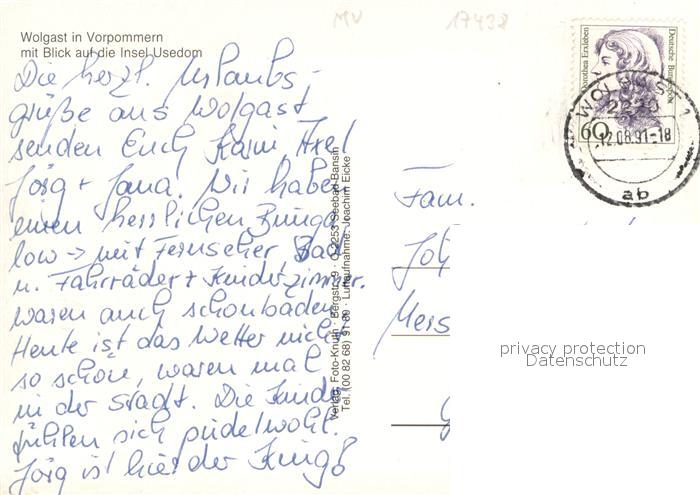 MV 17438
Wolgast in Vorpommern
mit Blick auf die Insel Usedom
Die herzl. Urlaubs-
grüße aus Wolgast
senden Euch Karin, Axel
Jörg + Jana. Wir haben
einen herrlichen Bunga-
low -> mit Fernseher, Bad
u. Fahrräder + Kinderzimmer.
waren auch schon baden.
Heute ist das Wetter nicht
so schön, waren mal
in der Stadt. Die Kinder
fühlen sich pudelwohl.
Jörg ist hier der King!
Verlag: Foto-Knuth · Bergstr. 9 · O-2253 Seebad Bansin
Tel. (00 82 68) 91 89 · Luftaufnahme: Joachim Eicke
Dorothea Erxleben
Deutsche Bundespost
60
WOLGAST 1
2220
12.08.91-18
ab
Fam.
Meis
privacy protection
Datenschutz